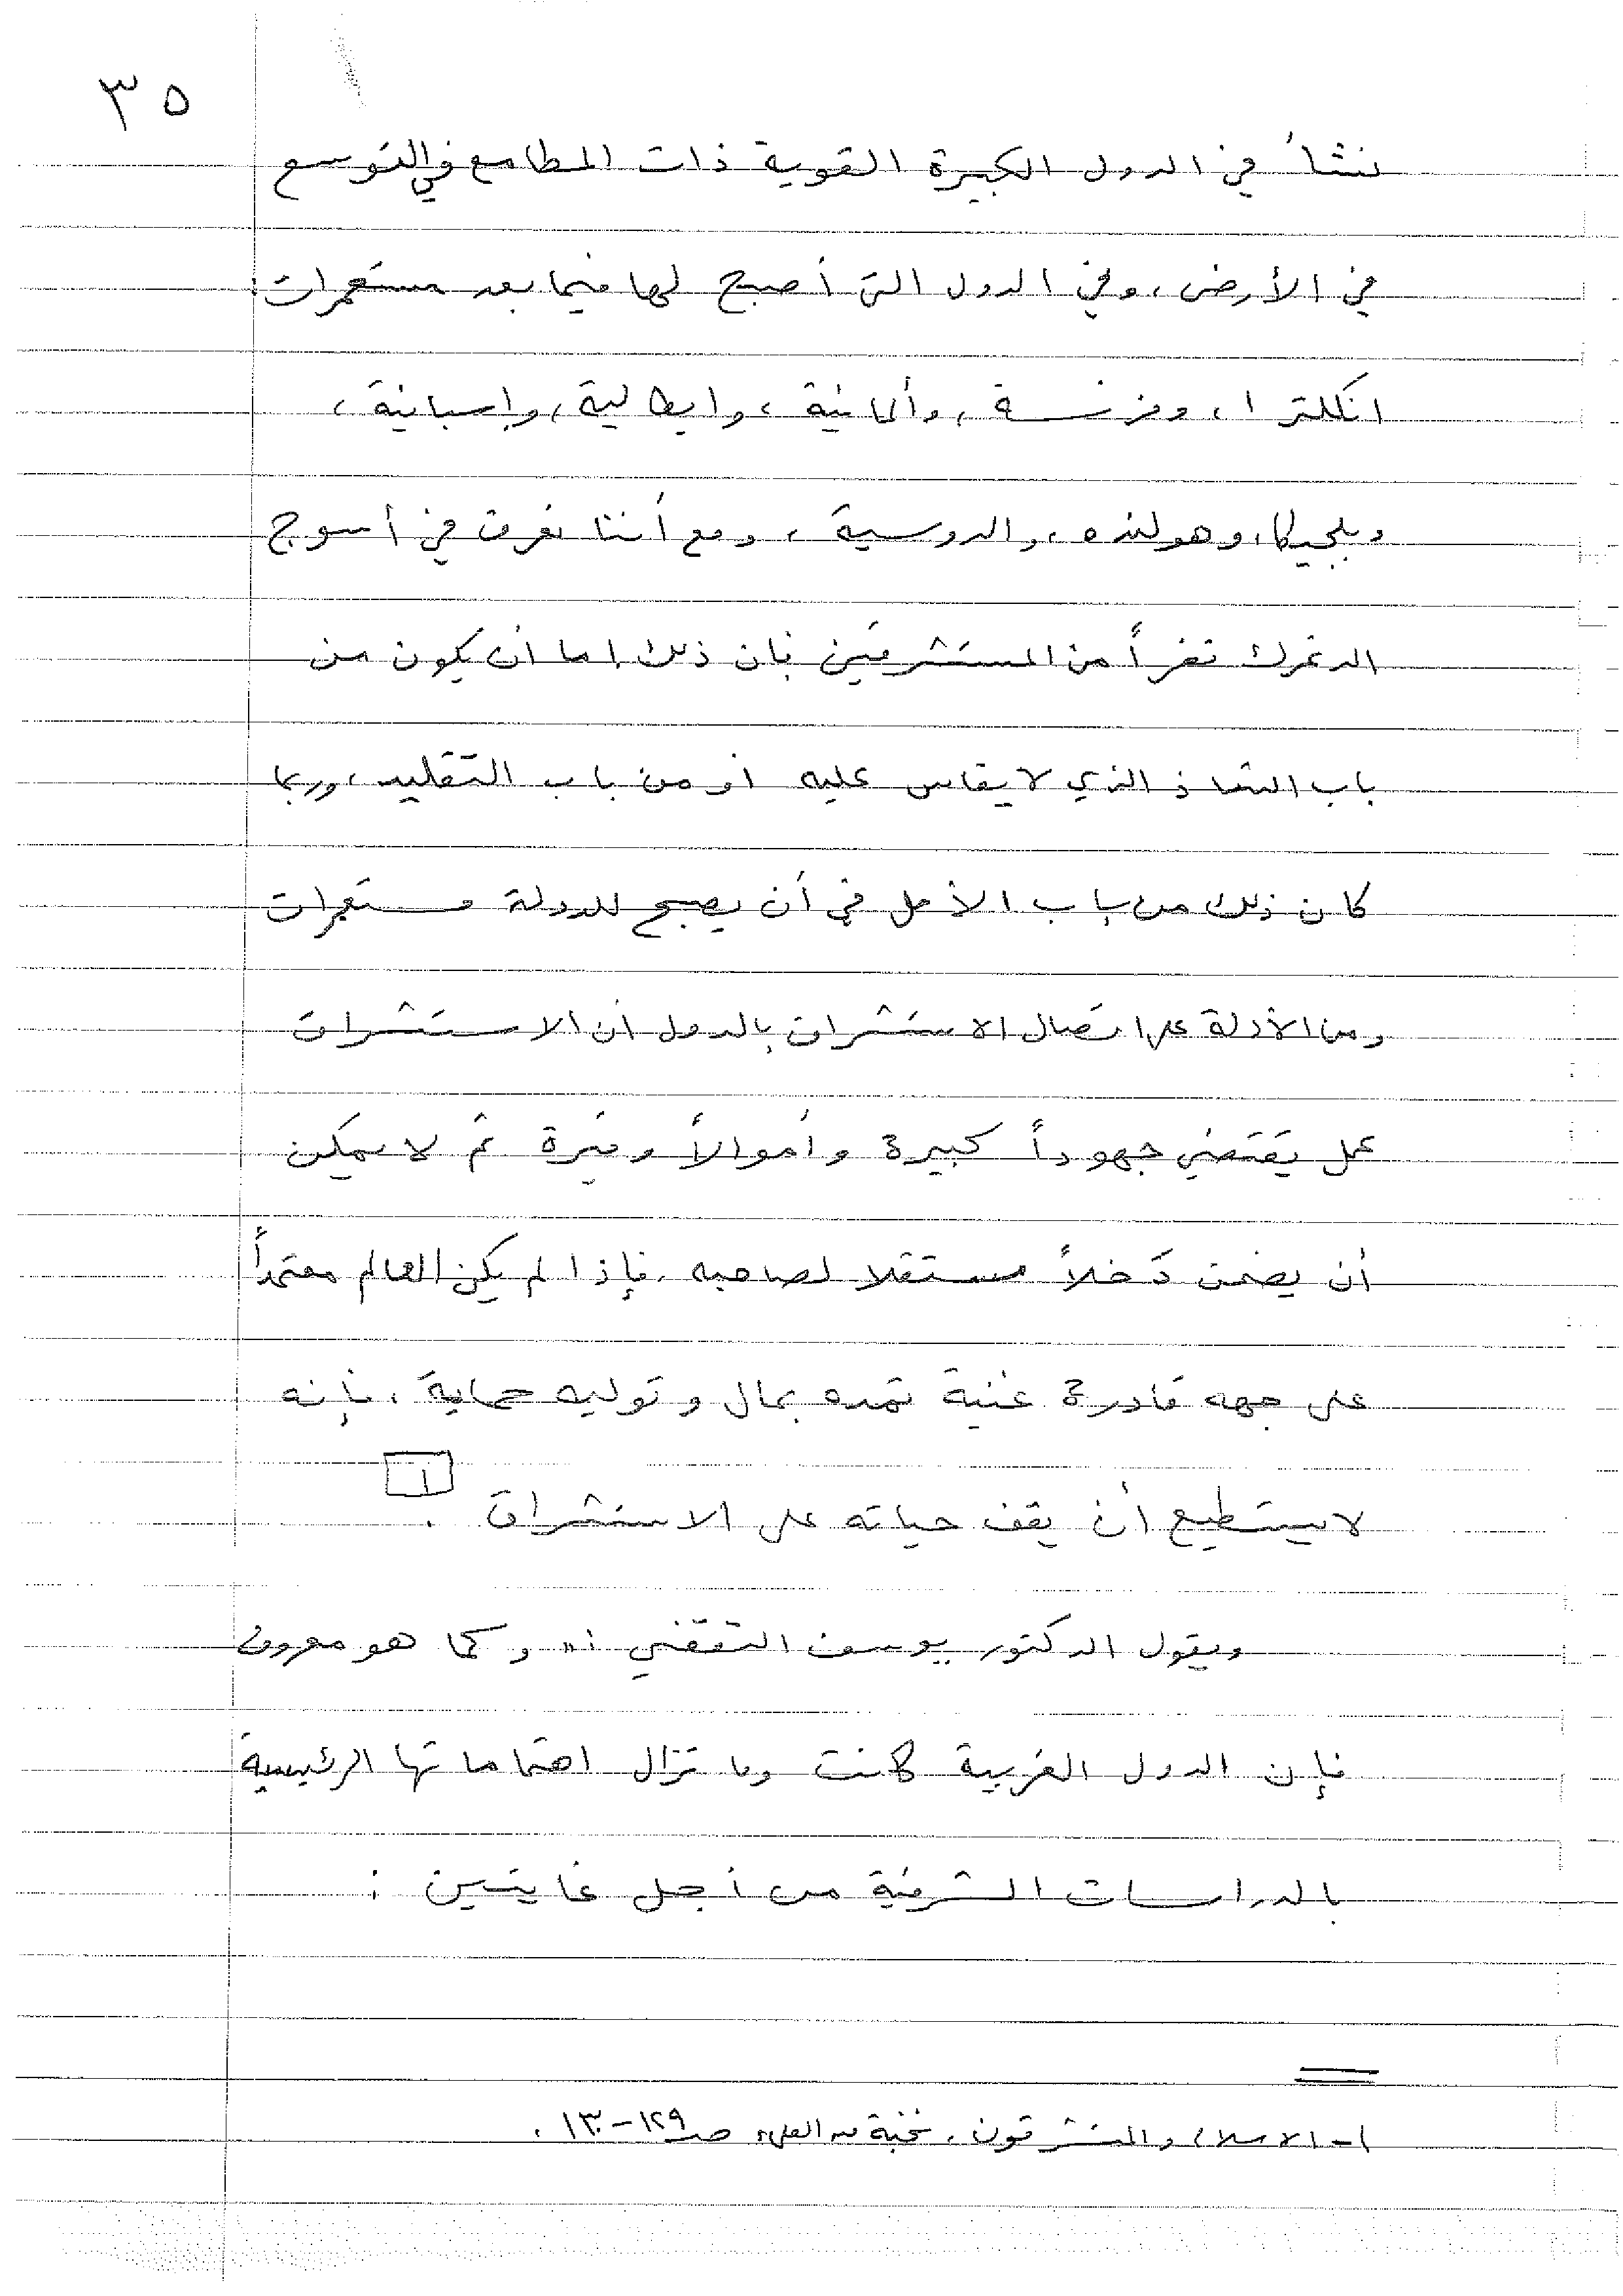 ٣٥
نشأ في الدول الكبيرة القوية ذات المطامع في التوسع
في الأرض، وفي الدول التي أصبح لها فيما بعد مستعمرات:
انكلترا، وفرنسة، وألمانية، وايطالية، وإسبانية،
وبلجيكا، وهولنده، والروسية، ومع أننا نعرف في أسوج
الدنمرك نفراً من المستشرقين فإن ذلك إما أن يكون من
باب الشاذ الذي لا يقاس عليه أو من باب التقليد، وربما
كان ذلك من باب الأمل في أن يصبح للدولة مستعمرات
ومن الأدلة على اتصال الاستشراق بالدول أن الاستشراق
عمل يقتضي جهوداً كبيرة وأموالاً وفيرة ثم لا يمكن
أن يضمن دَخلاً مستقلا لصاحبه، فإذا لم يكن العالم معتمداً
على جهه قادرة غنية تمده بمال وتوليه حماية، فإنه
لا يستطيع أن يقف حياته على الاستشراق. [١]
ويقول الدكتور يوسف الثقفي: " وكما هو معروف
فإن الدول الغربية كانت وما تزال اهتماماتها الرئيسية
بالدراسات الشرقية من أجل غايتين:
١- الاسلام والمستشرقون، نخبة من العلماء صـ ١٢٩-١٣٠.